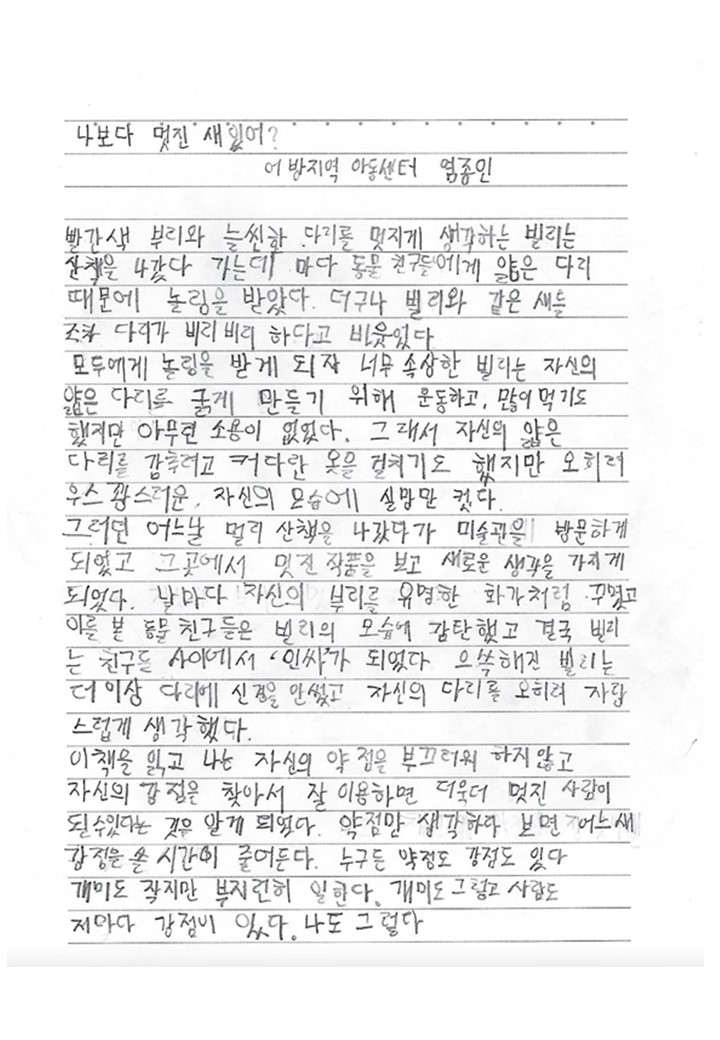 나보다 멋진 새 있어?
어방지역 아동센터 염종인
빨간색 부리와 늘씬한 다리를 멋지게 생각하는 빌리는
산책을 나갔다 가는데 마다 동물 친구들에게 얇은 다리
때문에 놀림을 받았다. 더구나 빌리와 같은 새들
조차 다리가 비리비리 하다고 비웃었다
모두에게 놀림을 받게 되자 너무 속상한 빌리는 자신의
얇은 다리를 굵게 만들기 위해 운동하고, 많이 먹기도
했지만 아무런 소용이 없었다. 그래서 자신의 얇은
다리를 감추려고 커다란 옷을 걸치기도 했지만 오히려
우스꽝스러운, 자신의 모습에 실망만 컸다.
그러던 어느날 멀리 산책을 나갔다가 미술관을 방문하게
되었고 그곳에서 멋진 작품을 보고 새로운 생각을 가지게
되었다. 날마다 자신의 부리를 유명한 화가처럼 꾸몄고
이를 본 동물 친구들은 빌리의 모습에 감탄했고 결국 빌리
는 친구들 사이에서 '인싸'가 되었다 으쓱해진 빌리는
더이상 다리에 신경을 안썼고 자신의 다리를 오히려 자랑
스럽게 생각했다.
이책을 읽고 나는 자신의 약점을 부끄러워 하지않고
자신의 강점을 찾아서 잘 이용하면 더욱더 멋진 사람이
될수있다는 것을 알게 되었다. 약점만 생각하다 보면 어느새
강점을 쓸 시간이 줄어든다. 누구든 약점도 강점도 있다
개미도 작지만 부지런히 일한다. 개미도 그렇고 사람도
저마다 강점이 있다. 나도 그렇다